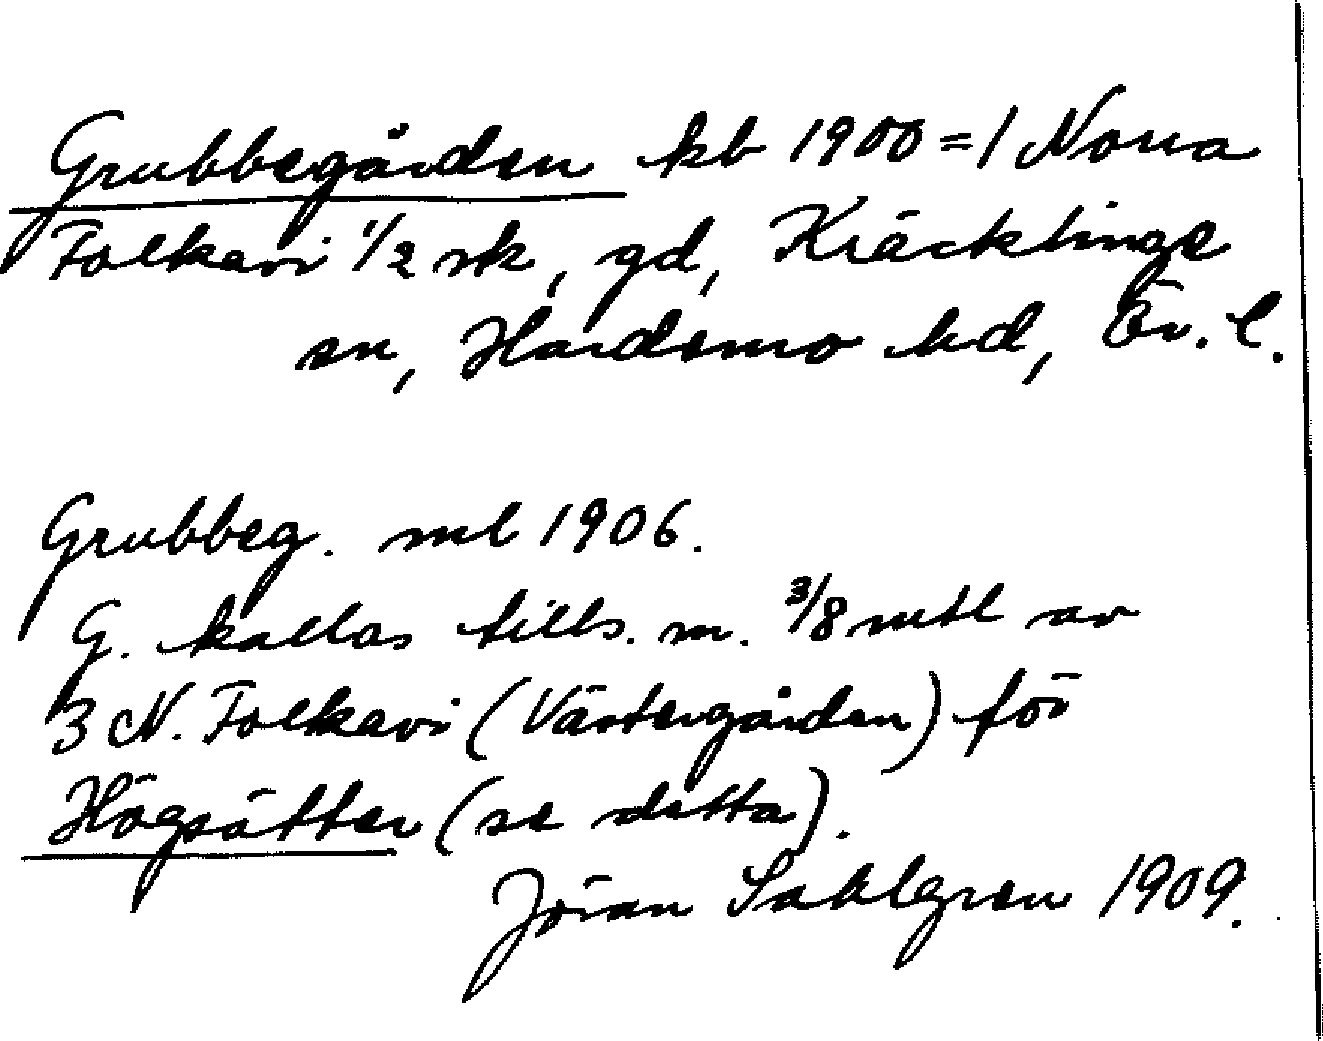 Grubbegården kb 1900 = 1 Norra
Folkavi 1/2 sk, gd, Kräcklinge
sn, Hardemo hd, Ör. l.
Grubbeg. ml 1906.
G. kallas tills. m. 3/8 mtl av
3 N. Folkavi (Västergården) för
Högsätter (se detta).
Jöran Sahlgren 1909.